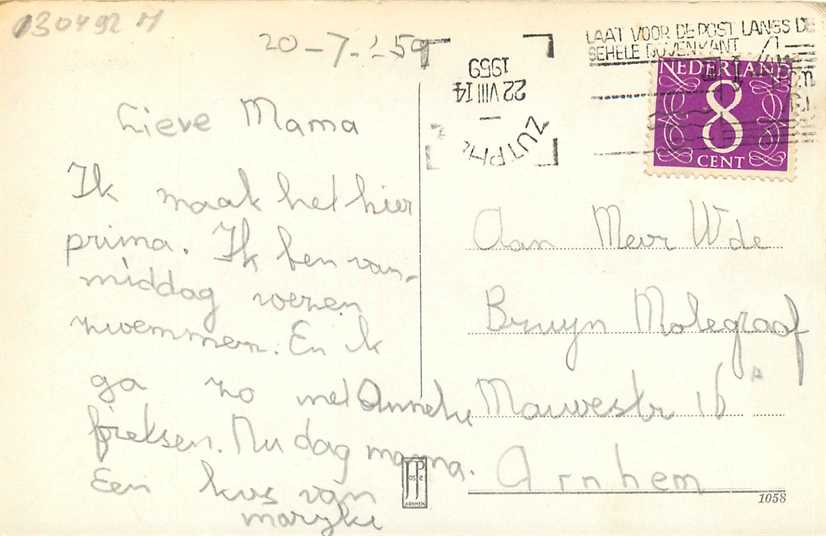 130492 M
20-7-'59
Lieve Mama
Ik maak het hier
prima. Ik ben van-
middag wezen
zwemmen. En ik
ga zo met Anneke
fietsen. Nu dag mama.
Een kus van
maryke
22 VIII 14
1959
ZUTPHE
LAAT VOOR DE POST LANGS DE
GEHELE BOVENKANT
NEDERLAND
8
CENT
Aan Mevr W de
Bruyn Molegraaf
Mauvestr 16
Arnhem
JosPe
ARNHEM
1058